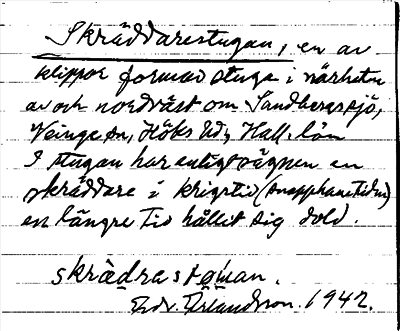 Skräddarestugan, en av
klippor formad stuga i närheten
av och nordväst om Sandbergssjö,
Veinge sn, Höks hd, Hall. län
I stugan har enligt sägnen en
skräddare i krigstid (snapphanetiden)
en längre tid hållit sig dold.
skrädrastøuan.
Edv. Örlandson. 1942.